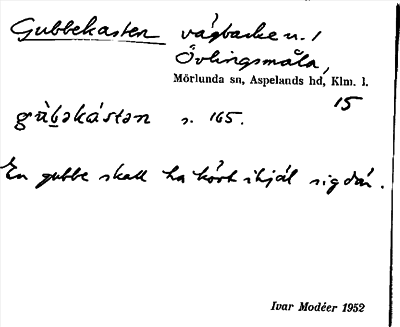 Gubbekasten vägbacke n. 1
Övlingsmåla,
Mörlunda sn, Aspelands hd, Klm. l.
15
gùb̲əkástən s. 165.
En gubbe skall ha kört ihjäl sig där.
Ivar Modéer 1952